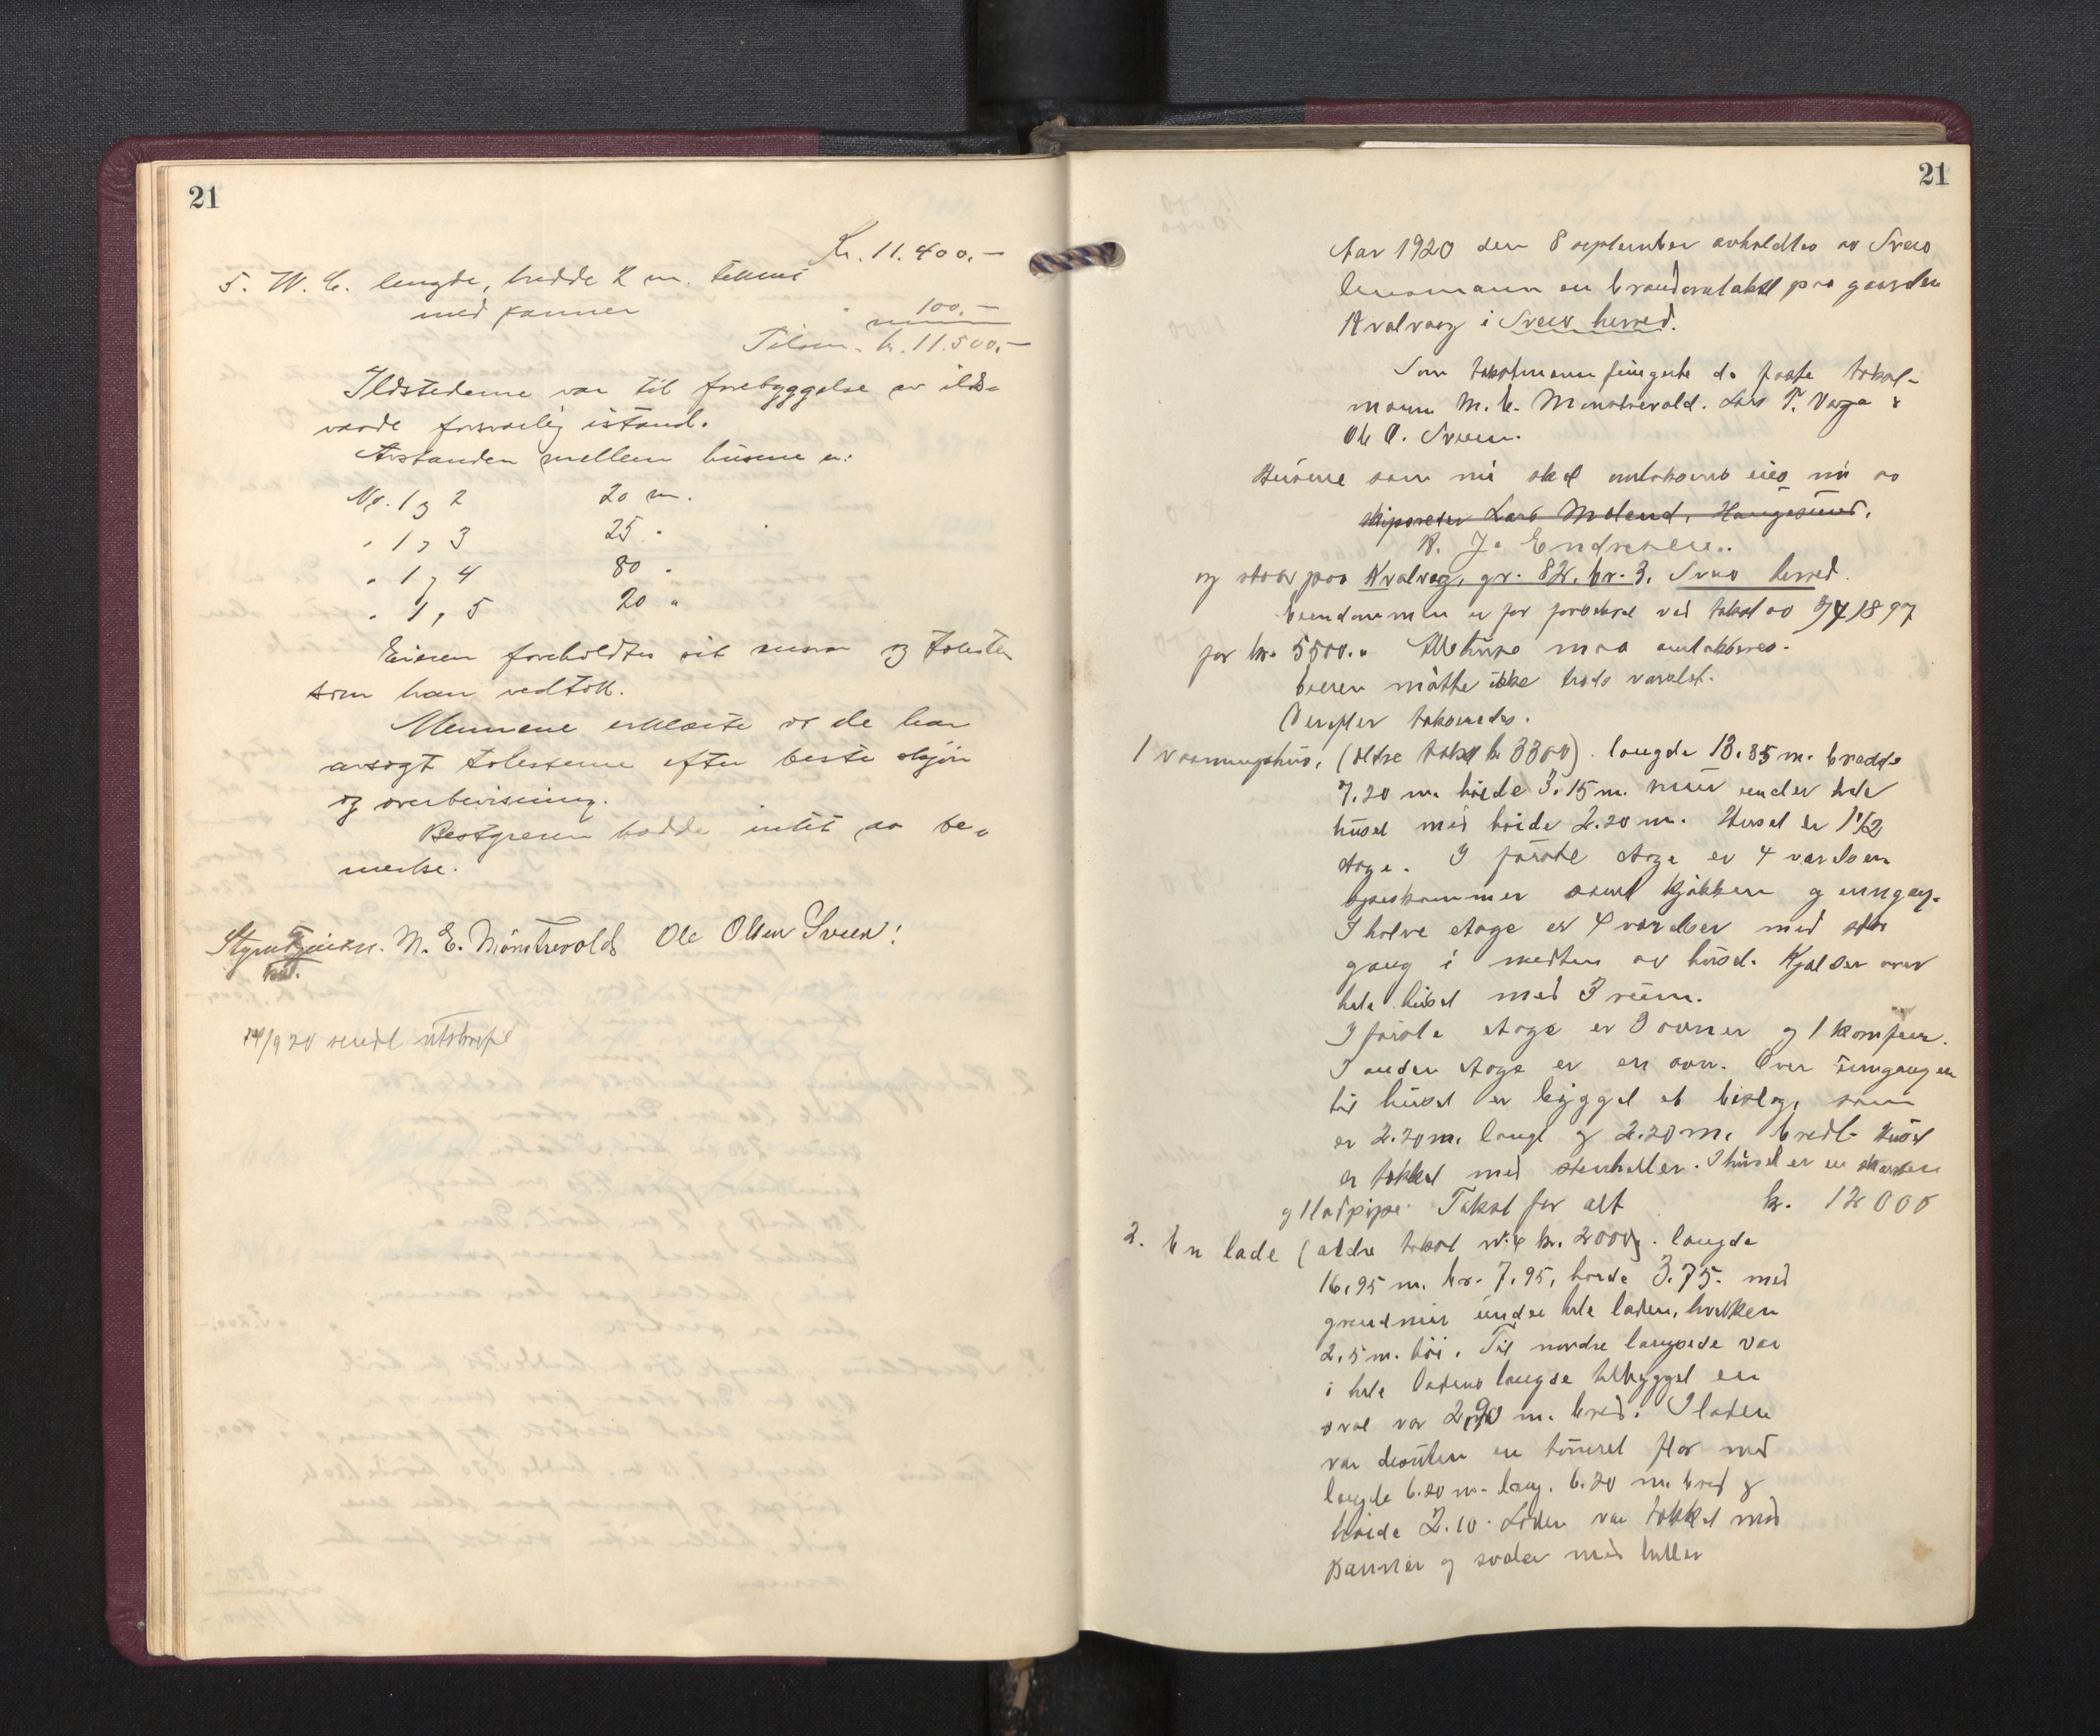 21
Kr. 11.400.-
5. W. C. lengde, bredde 2 m. tekket
med panner " 100.-
Tilsm. kr. 11.500.-
Ildstederne var til forebyggelse av ilds-
vaade forsvarlig istand.
Avstanden mellem husene er:
No. 1 og 2 20 m.
" 1 , 3 25 "
" 1 , 4 80 "
" 1 , 5 20 "
Eieren foreholdtes sit ansvar og taksten
som han vedtok.
Mennene erklærte at de har
avsagt taksterne efter beste skjøn
og overbevisning.
Bestyreren hadde intet aa be-
merke.
M. E. Mönstrevold Ole Olsen Sveen!
14/9 20 sendt utskrift
21
Aar 1920 den 8 september avholdtes av Sveio
lensmann en brandomtakst paa gaarden
Kvalvaag i Sveio herred.
Som takstmann fungerte de faste takst-
menn M. E. Mønstrevold. Lars T. Vaga &
Ole O. Sveen.
Husene som nu skal omtakseres eies nu av
skipsreder Lars Moland, Haugesund.
K. J. Endresen.
og staar paa Kvalvaag, gr. 82. br. 3. Sveio herred.
Eiendommen er før forsikret ved takst av 3/4 1897
for kr. 5500.- Alle huse maa omtakseres.
Eieren møtte ikke trods varslet.
Derefter takseredes.
1 vaaningshus, (ældre takst kr 3300). længde 13.85 m. bredde
7.20 m. høide 3.15 m. mur under hele
huset med høide 2.20 m. Huset er 1 1/2
etage. I første etage er 4 værelser
spiskammer samt kjøkken og inngang.
I halve etage er 4 værelser med stor
gang i midten av huset. Kjelder over
hele huset med 3 rum.
I første etage er 3 ovner og 1 komfur.
I anden etage er en ovn. Over inngangen
til huset er bygget et bislag, som
er 2.20 m. langt og 2.20 m. bredt. Huset
er tekket med stenheller. I huset er en skorsten
og 1 ladpipe. Takst for alt kr. 12000
2. En lade (ældre takst kr. 2000). længde
16.95 m. br. 7.95, høide 3.75. med
grundmur under hele laden, hvilken
2.5 m. høi. Til nordre langside var
i hele ladens længde tilbygget en
sval var 2.90 m. bred. I laden
var desuten en tømret flor med
længde 6.20 m. lang. 6.20 m. bred og
høide 2.10. Laden var tekket med
panner og svalen med heller